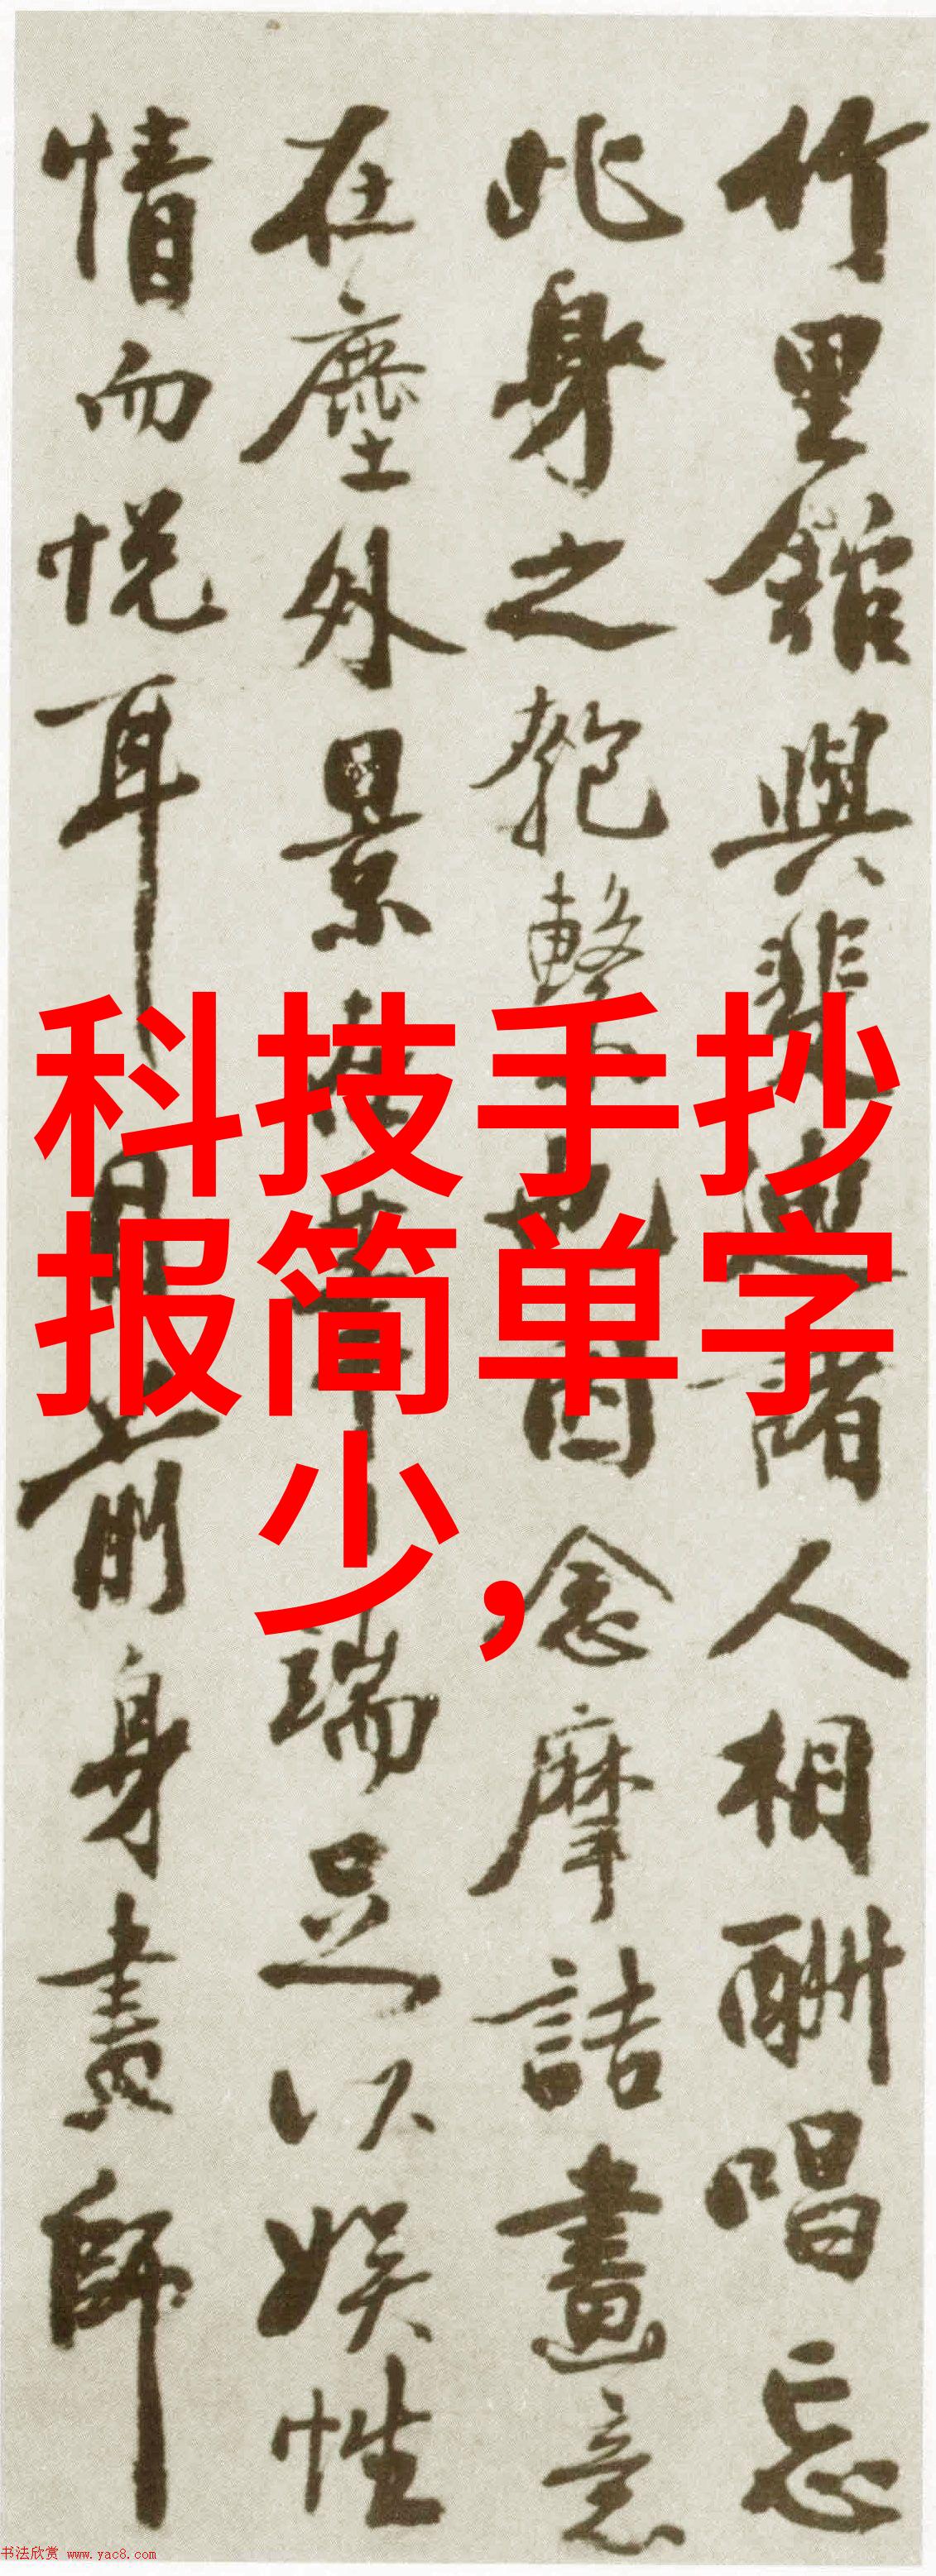 竹里館與裴迪諸人相酬唱忘
此身之匏繫也因念摩詰畫意
在塵外景
端足以娱性
情而悦耳目前身畫師
科技手抄
报简单字
少，
书法欣赏 www.yac8.com